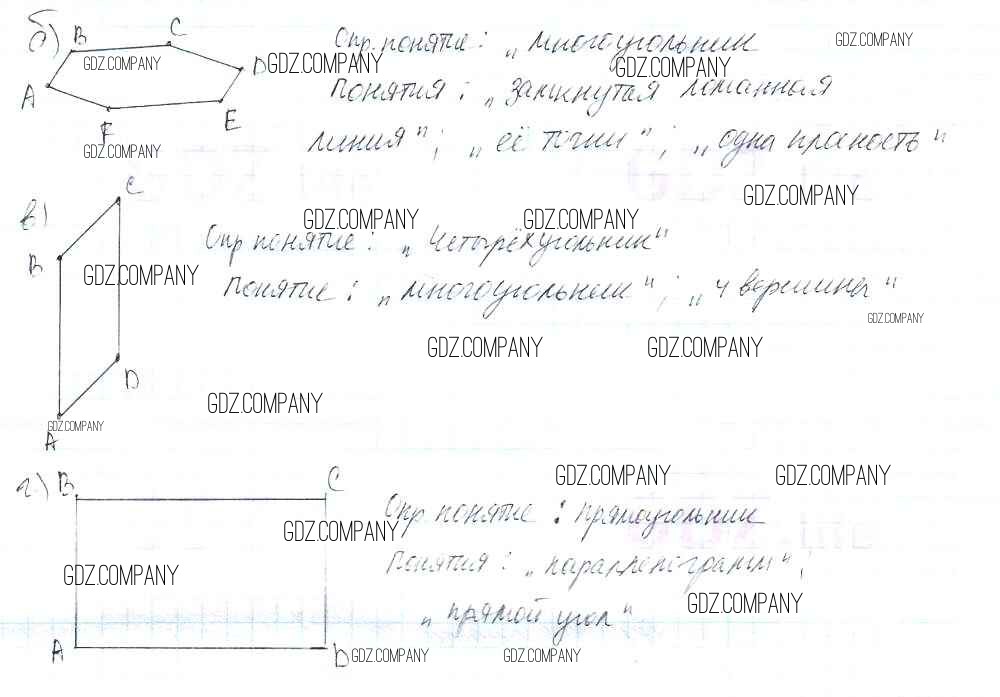 б) B C Опр. понятие: „многоугольник GDZ.COMPANY
GDZ.COMPANY D GDZ.COMPANY GDZ.COMPANY
A понятия: „замкнутая ломанная
F E
GDZ.COMPANY линия"; „её точки"; „одна
C GDZ.COMPANY
в) GDZ.COMPANY GDZ.COMPANY
B Опр понятие: „Четырёхугольник"
GDZ.COMPANY понятие: „многоугольник"; „4 вершины"
GDZ.COMPANY
GDZ.COMPANY GDZ.COMPANY
D
GDZ.COMPANY
GDZ.COMPANY
A
г.) B C GDZ.COMPANY GDZ.COMPANY
Опр понятие: прямоугольник
GDZ.COMPANY
GDZ.COMPANY понятия: „параллелограмм";
GDZ.COMPANY
„прямой угол"
A D GDZ.COMPANY GDZ.COMPANY